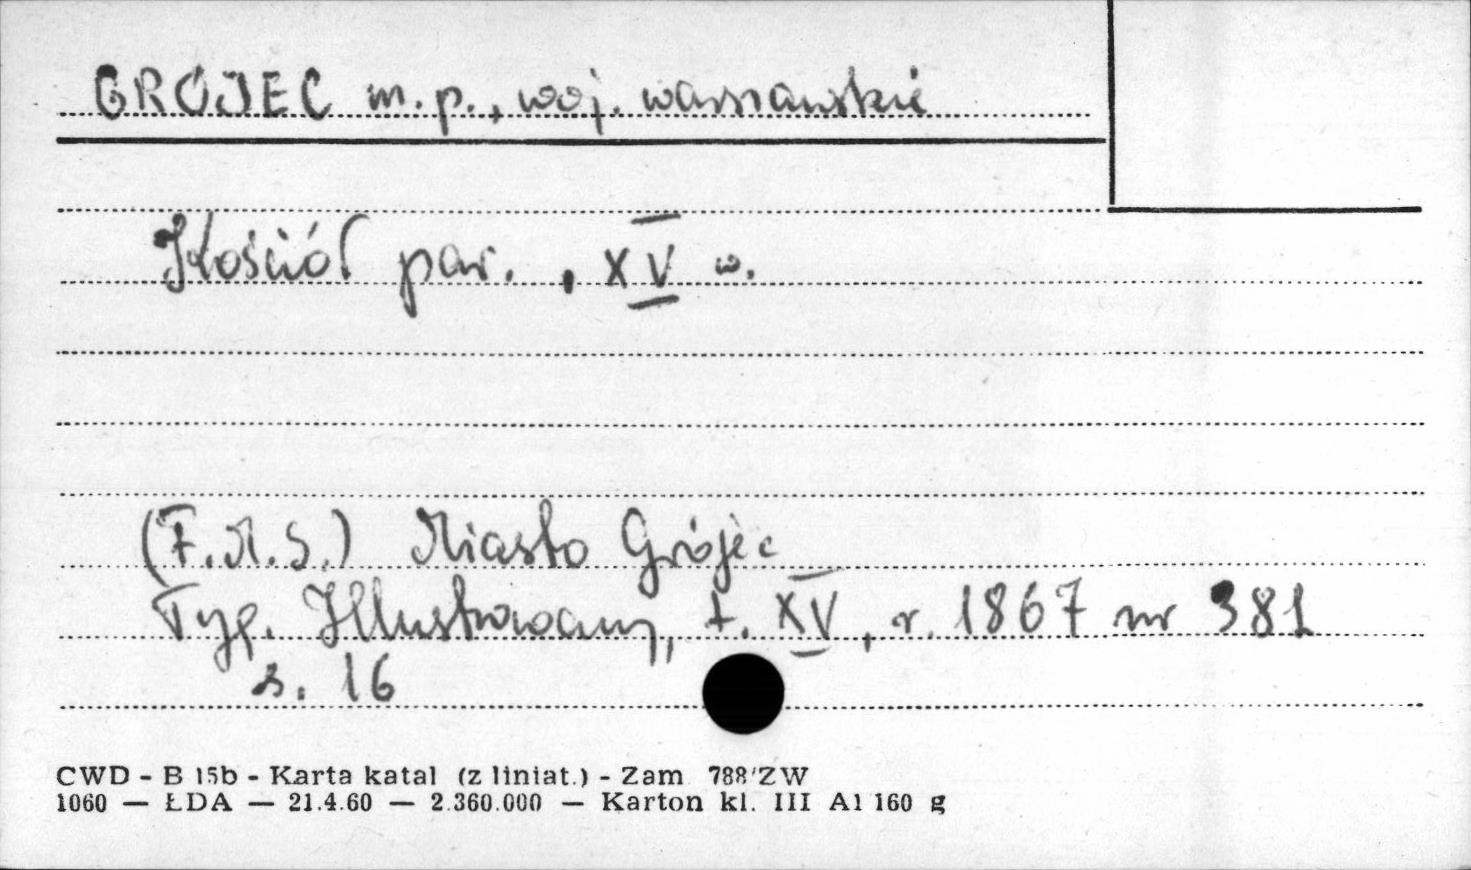 GRÓJEC m.p., woj. warszawskie
Kościół par., XV w.
(F.M.S.) Miasto Grójec
Tyg. Illustrowany, t. XV, r. 1867 nr 381
s. 16
CWD - B 15b - Karta katal (z liniat.) - Zam 788/ZW
1060 — ŁDA — 21.4.60 — 2.360.000 — Karton kl. III A1 160 g